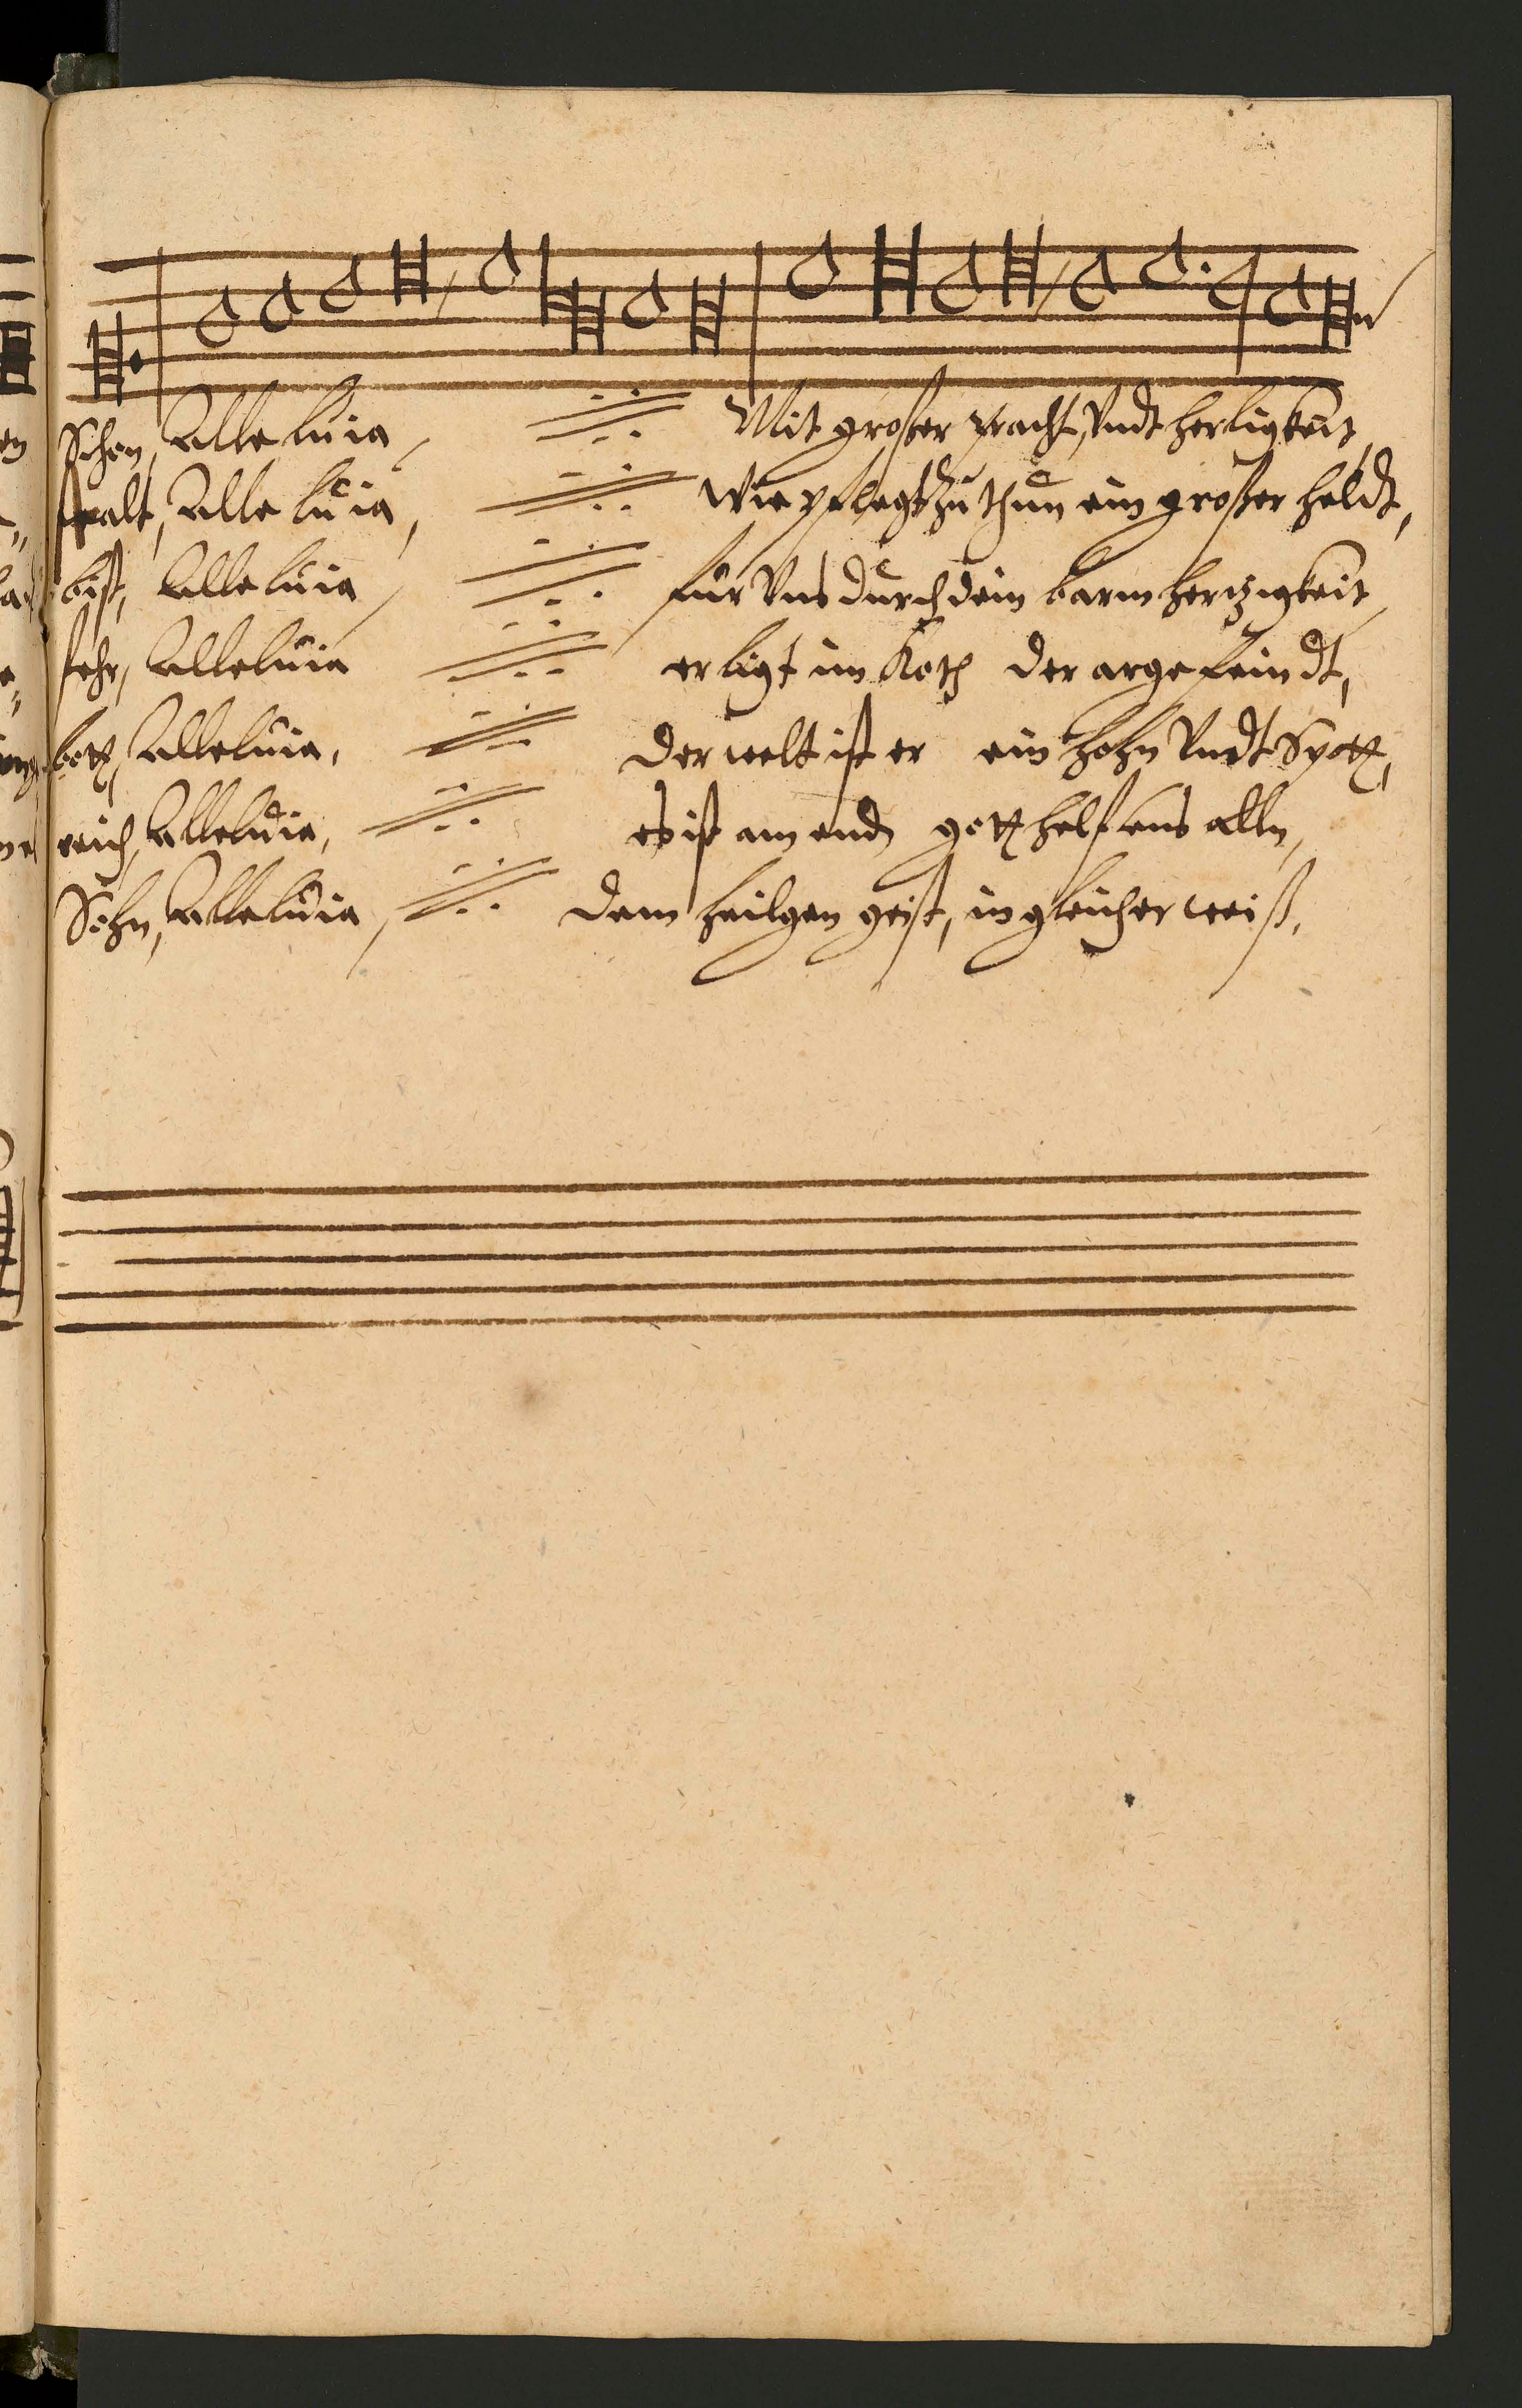 Schon, Alleluia, Mit großer pracht, Vndt herligkeit,
stalt, Alleluia, Wie pflegt zu thun ein großer heldt,
bist, Alleluia, für Vns durch dein barmhertzigkeit,
sehr, Alleluia er ligt im Koth der arge feindt,
bott, Alleluia, der welt ist er ein hohn Vndt Spott,
reich, Alleluia, es ist am endt gott helf uns alln,
Sohn, Alleluia, dem heilgen geist, in gleicher weiß,